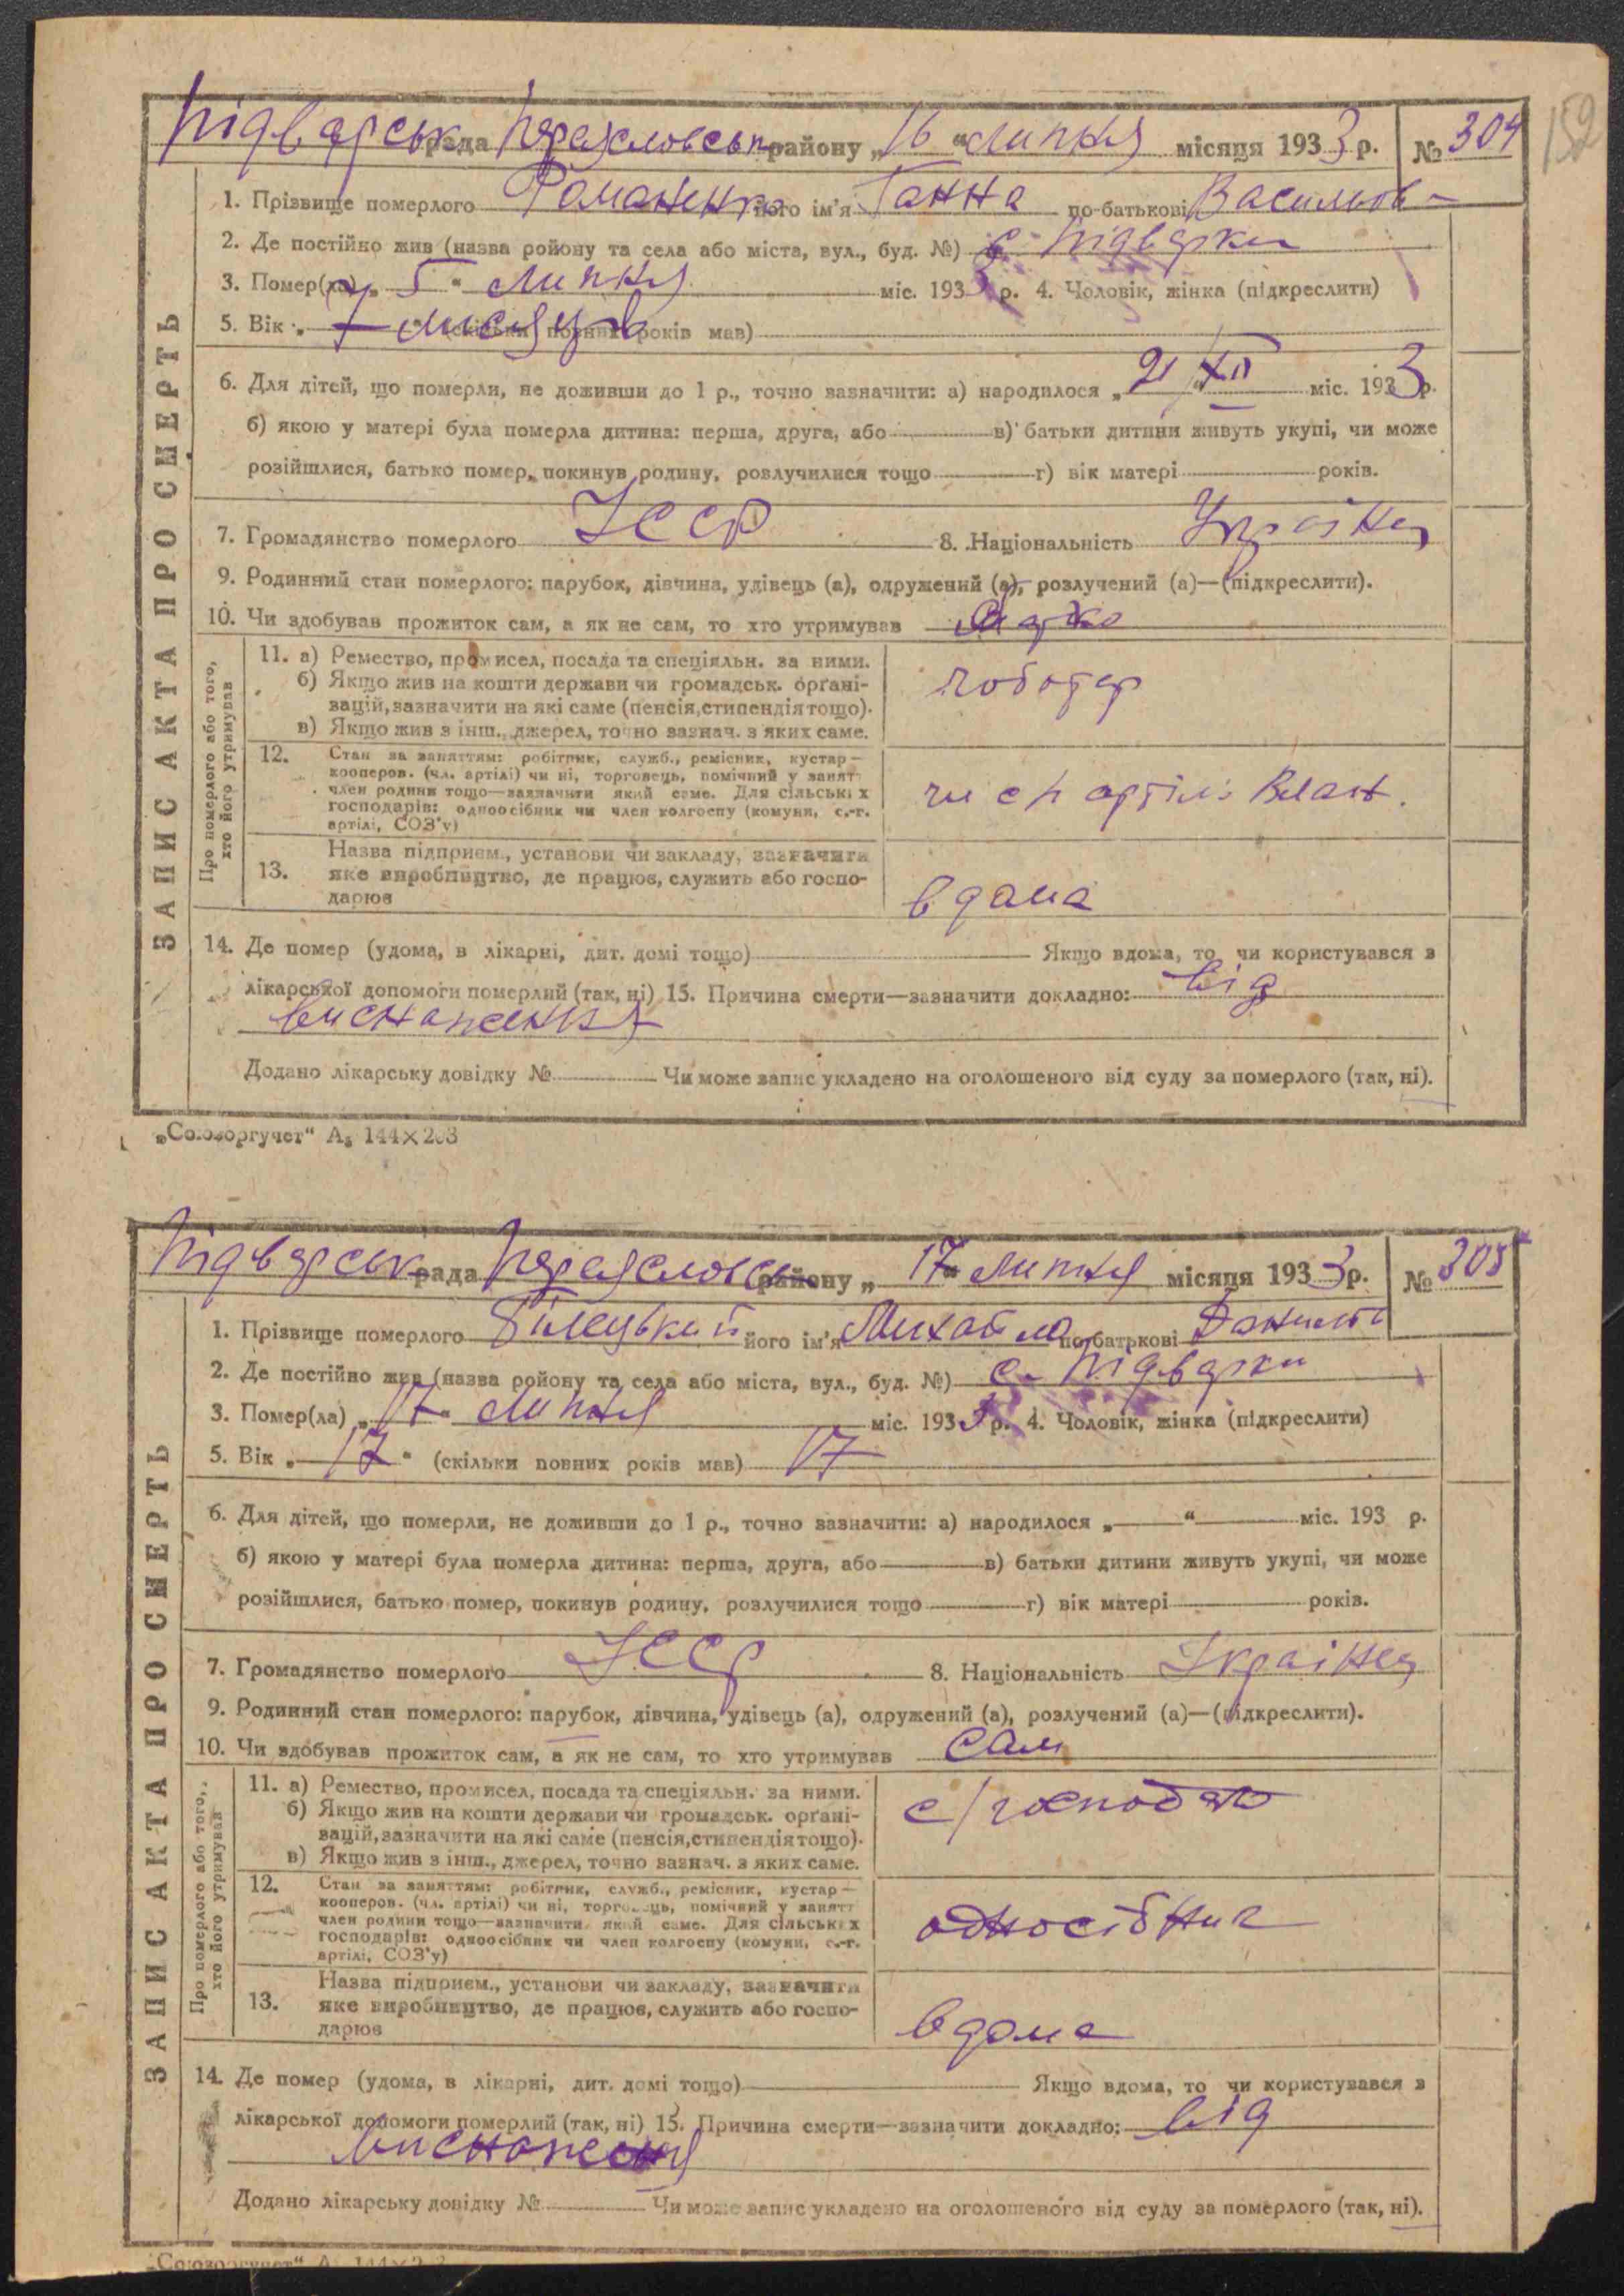 152
Підварськ рада Переяславськ району „16“ липня місяця 1933 р. № 304
ЗАПИС АКТА ПРО СМЕРТЬ
1. Прізвище померлого Романенко його ім'я Ганна по-батькові Васильов
2. Де постійно жив (назва ройону та села або міста, вул., буд. №) с. Підварки
3. Помер(ла) „5“ липня міс. 1933 р. 4. Чоловік, жінка (підкреслити)
5. Вік „7 місяців“ (скільки повних років мав)
6. Для дітей, що померли, не доживши до 1 р., точно зазначити: а) народилося „21“ XII міс. 1933 р.
б) якою у матері була померла дитина: перша, друга, або в) батьки дитини живуть укупі, чи може
розійшлися, батько помер, покинув родину, розлучилися тощо г) вік матері років.
7. Громадянство померлого УССР 8. Національність Українец
9. Родинний стан померлого: парубок, дівчина, удівець (а), одружений (а), розлучений (а)—(підкреслити).
10. Чи здобував прожиток сам, а як не сам, то хто утримував
Про померлого або того, хто його утримував
11. а) Ремество, промисел, посада та спеціяльн. за ними.
б) Якщо жив на кошти держави чи громадськ. орґані-
зацій, зазначити на які саме (пенсія, стипендія тощо).
в) Якщо жив з інш., джерел, точно зазнач. з яких саме.
чоботар
12. Стан за заняттям: робітник, служб., ремісник, кустар—
кооперов. (чл. артілі) чи ні, торговець, помічний у занят
член родини тощо—зазначити який саме. Для сільських
господарів: одноосібник чи член колгоспу (комуни, с.-г.
артілі, СОЗ'у)
артілі
13. Назва підприєм., установи чи закладу, зазначити
яке виробництво, де працює, служить або госпо-
дарює
вдома
14. Де помер (удома, в лікарні, дит. домі тощо) Якщо вдома, то чи користувався з
лікарської допомоги померлий (так, ні) 15. Причина смерти—зазначити докладно: від
виснаження
Додано лікарську довідку № Чи може запис укладено на оголошеного від суду за померлого (так, ні).
„Союзоргучет“ А5 144×203
Підварськ рада Переяславськ району „17“ липня місяця 1933 р. № 305
ЗАПИС АКТА ПРО СМЕРТЬ
1. Прізвище померлого Білецький його ім'я Михайло по-батькові Данилов
2. Де постійно жив (назва ройону та села або міста, вул., буд. №) с. Підварки
3. Помер(ла) „17“ липня міс. 1933 р. 4. Чоловік, жінка (підкреслити)
5. Вік „17“ (скільки повних років мав) 17
6. Для дітей, що померли, не доживши до 1 р., точно зазначити: а) народилося „ “ міс. 193 р.
б) якою у матері була померла дитина: перша, друга, або в) батьки дитини живуть укупі, чи може
розійшлися, батько помер, покинув родину, розлучилися тощо г) вік матері років.
7. Громадянство померлого УССР 8. Національність Українец
9. Родинний стан померлого: парубок, дівчина, удівець (а), одружений (а), розлучений (а)—(підкреслити).
10. Чи здобував прожиток сам, а як не сам, то хто утримував сам
Про померлого або того, хто його утримував
11. а) Ремество, промисел, посада та спеціяльн. за ними.
б) Якщо жив на кошти держави чи громадськ. орґані-
зацій, зазначити на які саме (пенсія, стипендія тощо).
в) Якщо жив з інш., джерел, точно зазнач. з яких саме.
с/господар
12. Стан за заняттям: робітник, служб., ремісник, кустар—
кооперов. (чл. артілі) чи ні, торговець, помічний у занятт
член родини тощо—зазначити який саме. Для сільських
господарів: одноосібник чи член колгоспу (комуни, с.-г.
артілі, СОЗ'у)
односібник
13. Назва підприєм., установи чи закладу, зазначити
яке виробництво, де працює, служить або госпо-
дарює
вдома
14. Де помер (удома, в лікарні, дит. домі тощо) Якщо вдома, то чи користувався з
лікарської допомоги померлий (так, ні) 15. Причина смерти—зазначити докладно: від
виснаження
Додано лікарську довідку № Чи може запис укладено на оголошеного від суду за померлого (так, ні).
„Союзоргучет“ А5 144×203